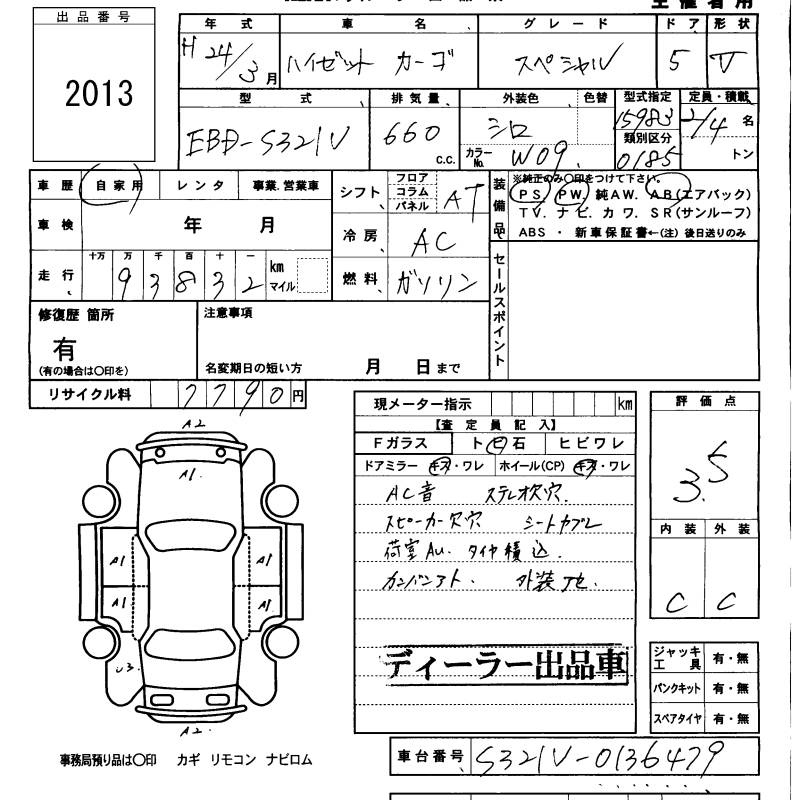 出品番号
2013
年式 車名 グレード ドア 形状
H24/3月 ハイゼット カーゴ スペシャル 5 V
型式 排気量 外装色 色替 型式指定 定員・積載
EBD-S321V 660 c.c. シロ 15983 2/4 名
カラーNo. W09 類別区分 0185 トン
車歴 自家用 レンタ 事業.営業車 シフト フロア コラム パネル AT
装備品 ※純正のみ○印をつけて下さい。
PS. PW. 純AW. AB(エアバック)
TV. ナビ. カワ. SR(サンルーフ)
ABS ・ 新車保証書←(注) 後日送りのみ
車検 年 月 冷房 AC
走行 十万 万 千 百 十 一 km マイル
93832
燃料 ガソリン
セールスポイント
修復歴 箇所 注意事項
有
(有の場合は○印を) 名変期日の短い方 月 日まで
リサイクル料 7790円
現メーター指示 km
【査定員記入】
Fガラス トビ石 ヒビワレ
ドアミラー キズ・ワレ ホイール(CP) キズ・ワレ
AC音 ステレオ欠穴.
スピーカー欠穴 シートヤブレ
荷室AU. タイヤ積込.
カンバンアト.
ディーラー出品車
評価点
3.5
内装 外装
C C
A2
A1.
A1 A1
A1 A1
U3.
A2.
ジャッキ工具 有・無
パンクキット 有・無
スペアタイヤ 有・無
事務局預り品は○印 カギ リモコン ナビロム
車台番号 S321V-0136479